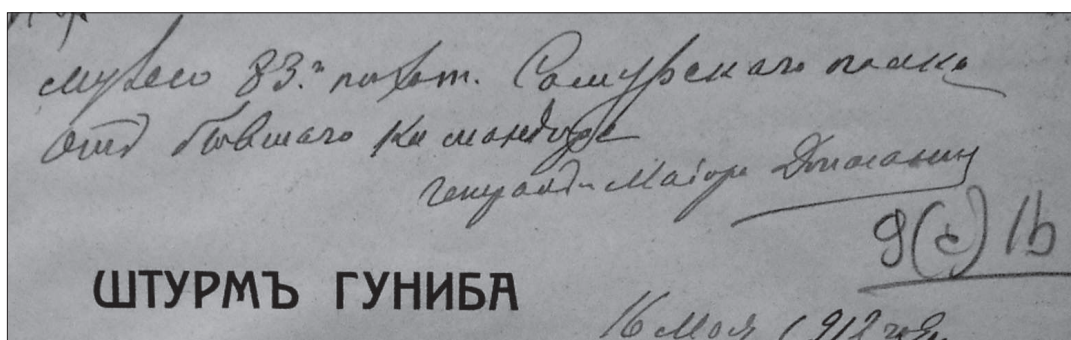 музею 83.го пехот. Самурскаго полка
отъ бывшаго командира
генералъ-маіора
9(с) 1b
ШТУРМЪ ГУНИБА
16 Мая 1912 года